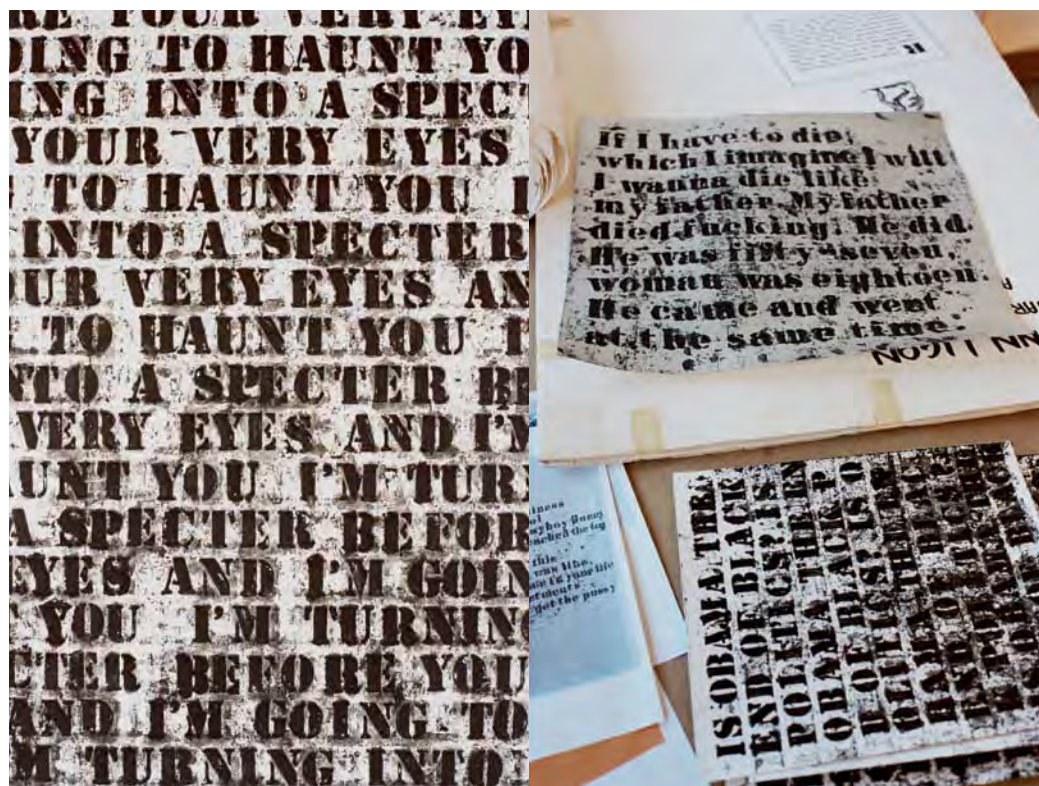 RE YOUR VERY EY
OING TO HAUNT YO
ING INTO A SPECT
YOUR VERY EYES
TO HAUNT YOU I
INTO A SPECTER
UR VERY EYES AN
TO HAUNT YOU I
NTO A SPECTER BE
VERY EYES AND I'M
AUNT YOU I'M TUR
A SPECTER BEFOR
EYES AND I'M GOIN
YOU I'M TURNING
CTER BEFORE YOU
AND I'M GOING TO
M TURNING INTO
If I have to die,
which I imagine I will
I wanna die like
my father. My father
died fucking. He did.
He was fifty-seven,
woman was eighteen.
He came and went
at the same time.
NN LIGON
iness
this
was like,
in your life
got the pussy
IS OBAMA THE
END OF BLACK
POLITICS? IS
OBAMA THE EN
D OF BLACK P
OLITICS? IS O
BAMA THE
END OF BLACK